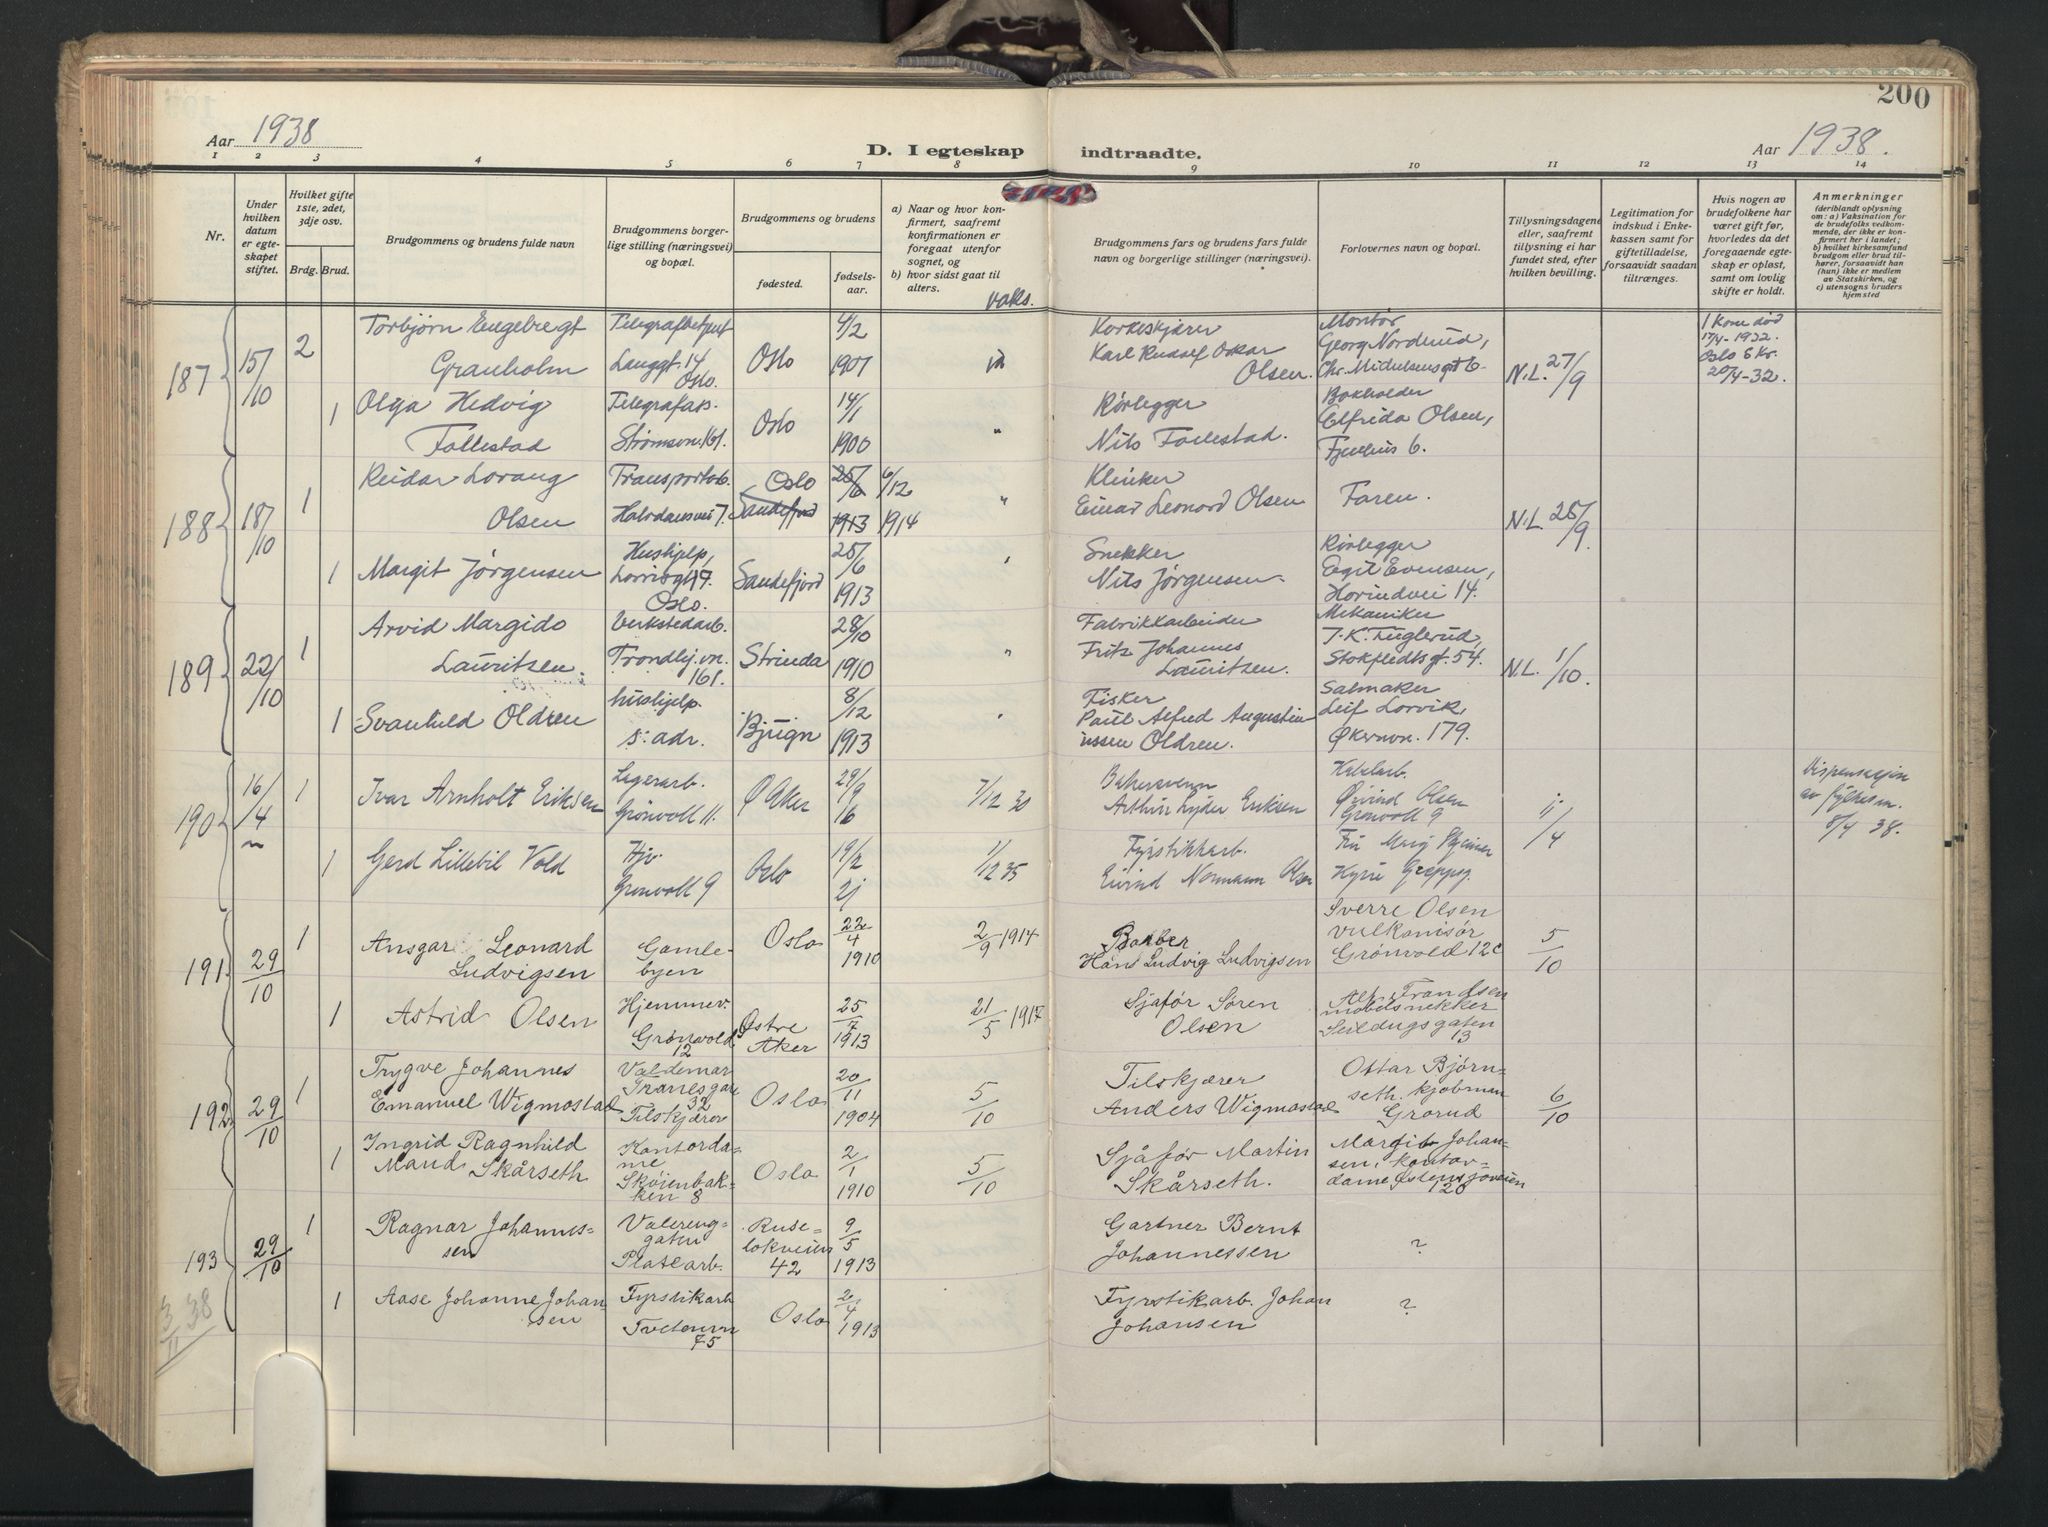 200
Aar 1938
D. I egteskap indtraadte.
Aar 1938.
1 2 3 4 5 6 7 8 9 10 11 12 13 14
Nr.
Under hvilken datum er egteskapet stiftet.
Hvilket gifte 1ste, 2det, 3dje osv.
Brdg. Brud.
Brudgommens og brudens fulde navn
Brudgommens borgerlige stilling (næringsvei) og bopæl.
Brudgommens og brudens
fødested.
fødselsaar.
a) Naar og hvor konfirmert, saafremt konfirmationen er foregaat utenfor sognet, og
b) hvor sidst gaat til alters.
vaks.
Brudgommens fars og brudens fars fulde navn og borgerlige stillinger (næringsvei).
Forlovernes navn og bopæl.
Tillysningsdagene eller, saafremt tillysning ei har fundet sted, efter hvilken bevilling.
Legitimation for indskud i Enkekassen samt for giftetilladelse, forsaavidt saadan tiltrænges.
Hvis nogen av brudefolkene har været gift før, hvorledes da det foregaaende egteskap er opløst, samt om lovlig skifte er holdt.
Anmerkninger
(deriblandt oplysning om: a) Vaksination for de brudefolks vedkommende, der ikke er konfirmert her i landet; b) hvilket kirkesamfund brudgom eller brud tilhører, forsaavidt han (hun) ikke er medlem av Statskirken, og c) utensogns bruders hjemsted
187 15/10 2
Torbjørn Engebregt
Granholm
Telegrafbetjent
Langgt. 14
Oslo.
Oslo
4/2
1907
Karl Rudolf Oskar
Olsen.
Montør
Georg Nordrud,
N.L. 27/9
1 Kone død
17/4-1932.
Oslo S Kr.
20/4-32.
1
Olga Hedvig
Follestad
Telegrafass.
Strømsvn. 161.
Oslo
14/1
1900
"
Rørlegger
Nils Follestad.
Bokholder
Elfrida Olsen,
188 18/10 1
Reidar Lorang
Olsen
Transportarb.
Halvdansvei 7.
Oslo
Sandefjord
25/6 6/12
1913 1914
"
Klinker
Einar Leonard Olsen
Faren.
N.L. 25/9
1
Margit Jørgensen
Hushjelp,
Oslo.
Sandefjord
25/6
1913
Snekker
Nils Jørgensen.
Rørlegger
Egil Evensen,
189 22/10 1
Arvid Margido
Lauritsen.
Verkstedarb.
Trondhj.vn.
161.
Strinda
28/10
1910
"
Fabrikkarbeider
Fritz Johannes
Lauritsen.
Mekaniker
J. K. Fuglerud,
Stokfledtsgt. 54.
N.L. 1/10.
1
Svanhild Oldren
hushjelp.
s. adr.
Bjugn
8/12
1913
Fisker
Paul Alfred Augustin
ussen Oldren.
Salmaker
Leif Lorvik,
Økernvn. 179.
190 16/4 1
Ivar Arnholt Eriksen
Lagerarb.
Grønvoll 11.
Ø Aker
29/9
16
7/12 30
Bakersvenn
Arthur Lyder Eriksen
Øivind Olsen
Grønvoll 9
/4
Dispensasjon
av fylkesm.
8/4 38.
1
Gerd Lillebil Vold
Hjv.
Grønvoll 9
Oslo
19/2
21
1/12 35
Fyrstikkarb.
Eivind Normann Olsen
191 29/10 1
Ansgar Leonard
Ludvigsen
Gamle-
byen
Oslo
22/4
1910
2/9 1914
Barber
Hans Ludvig Ludvigsen
Sverre Olsen
vulkanisør
Grønvold 12c
5/10
1
Astrid Olsen
Hjemmev.
Grønvold
12
Østre
Aker
25/7
1913
21/5 1917
Sjafør Søren
Olsen
Alf. Frandsen
møbelsnekker
Seildugsgaten
13
192 29/10 1
Trygve Johannes
Emanuel Wigmostad
Valdemar
Tranesgate
32
Tilskjærer
Oslo
20/11
1904
5/10
Tilskjærer
Anders Wigmostad
Ottar Bjørn-
seth, kjøbman
Grorud
6/10
1
Ingrid Ragnhild
Maud Skårseth
Kontorda-
me
Skøienbak-
ken 8
Oslo
2/1
1910
5/10
Sjåfør Martin
Skårseth.
Margit Johan-
sen, kontor-
dame Østensjøveien
120
193 29/10 1
Ragnar Johannes-
sen
Valereng-
gaten
Platearb.
Ruse-
løkveien
42
9/5
1913
Gartner Bernt
Johannessen
?
3/11 38
1
Aase Johanne Johan-
sen
Fyrstikarb
Tvetenvn
75
Oslo
2/4
1913
Fyrstikarb. Johan
Johansen
?